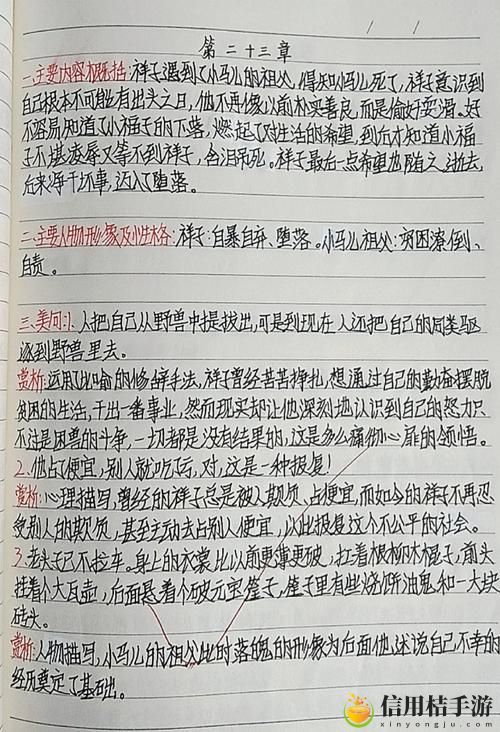 第二十三章
一、主要内容概括:祥子遇到了小马儿的祖父,得知小马儿死了,祥子意识到
自己根本不可能有出头之日,他不再像以前朴实善良,而是偷奸耍滑。好
不容易知道了小福子的下落,燃起了对生活的希望,到后才知道小福
子不堪凌辱又等不到祥子,含泪吊死。祥子最后一点希望也随之逝去,
后来净干坏事,迈入堕落。
二、主要人物形象及小性格:祥子:自暴自弃、堕落。小马儿祖父:穷困潦倒、
自责。
三、美句:1.人把自己从野兽中提拔出,可是到现在人还把自己的同类驱
逐到野兽里去。
赏析:运用了比喻的修辞手法,祥子曾经苦苦挣扎,想通过自己的勤奋摆脱
贫困的生活,干出一番事业,然而现实却让他深刻地认识到自己的努力只
不过是困兽的斗争,一切都是没有结果的,这是多么痛彻心扉的领悟。
2.他占了便宜,别人就吃亏,对,这是一种报复!
赏析:心理描写,曾经的祥子总是被人欺负、占便宜,而如今的祥子不再忍
受别人的欺负,甚至主动去占别人便宜,以此报复这个不公平的社会。
3.老头子已不拉车。身上的衣裳比以前更薄更破,扛着根柳木棍子,前头
挂着个大瓦壶,后面悬着个破元宝筐子,筐子里有些烧饼油鬼和一大块
砖头。
赏析:人物描写,小马儿的祖父此时落魄的形象为后面他述说自己不幸的
经历奠定了基础。
信用桔手游
xinyongju.com